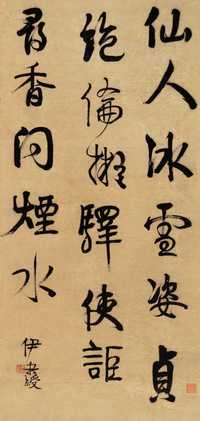 仙人冰雪姿貞
絶倫擬驛使詎
尋香问煙水
伊秉綬